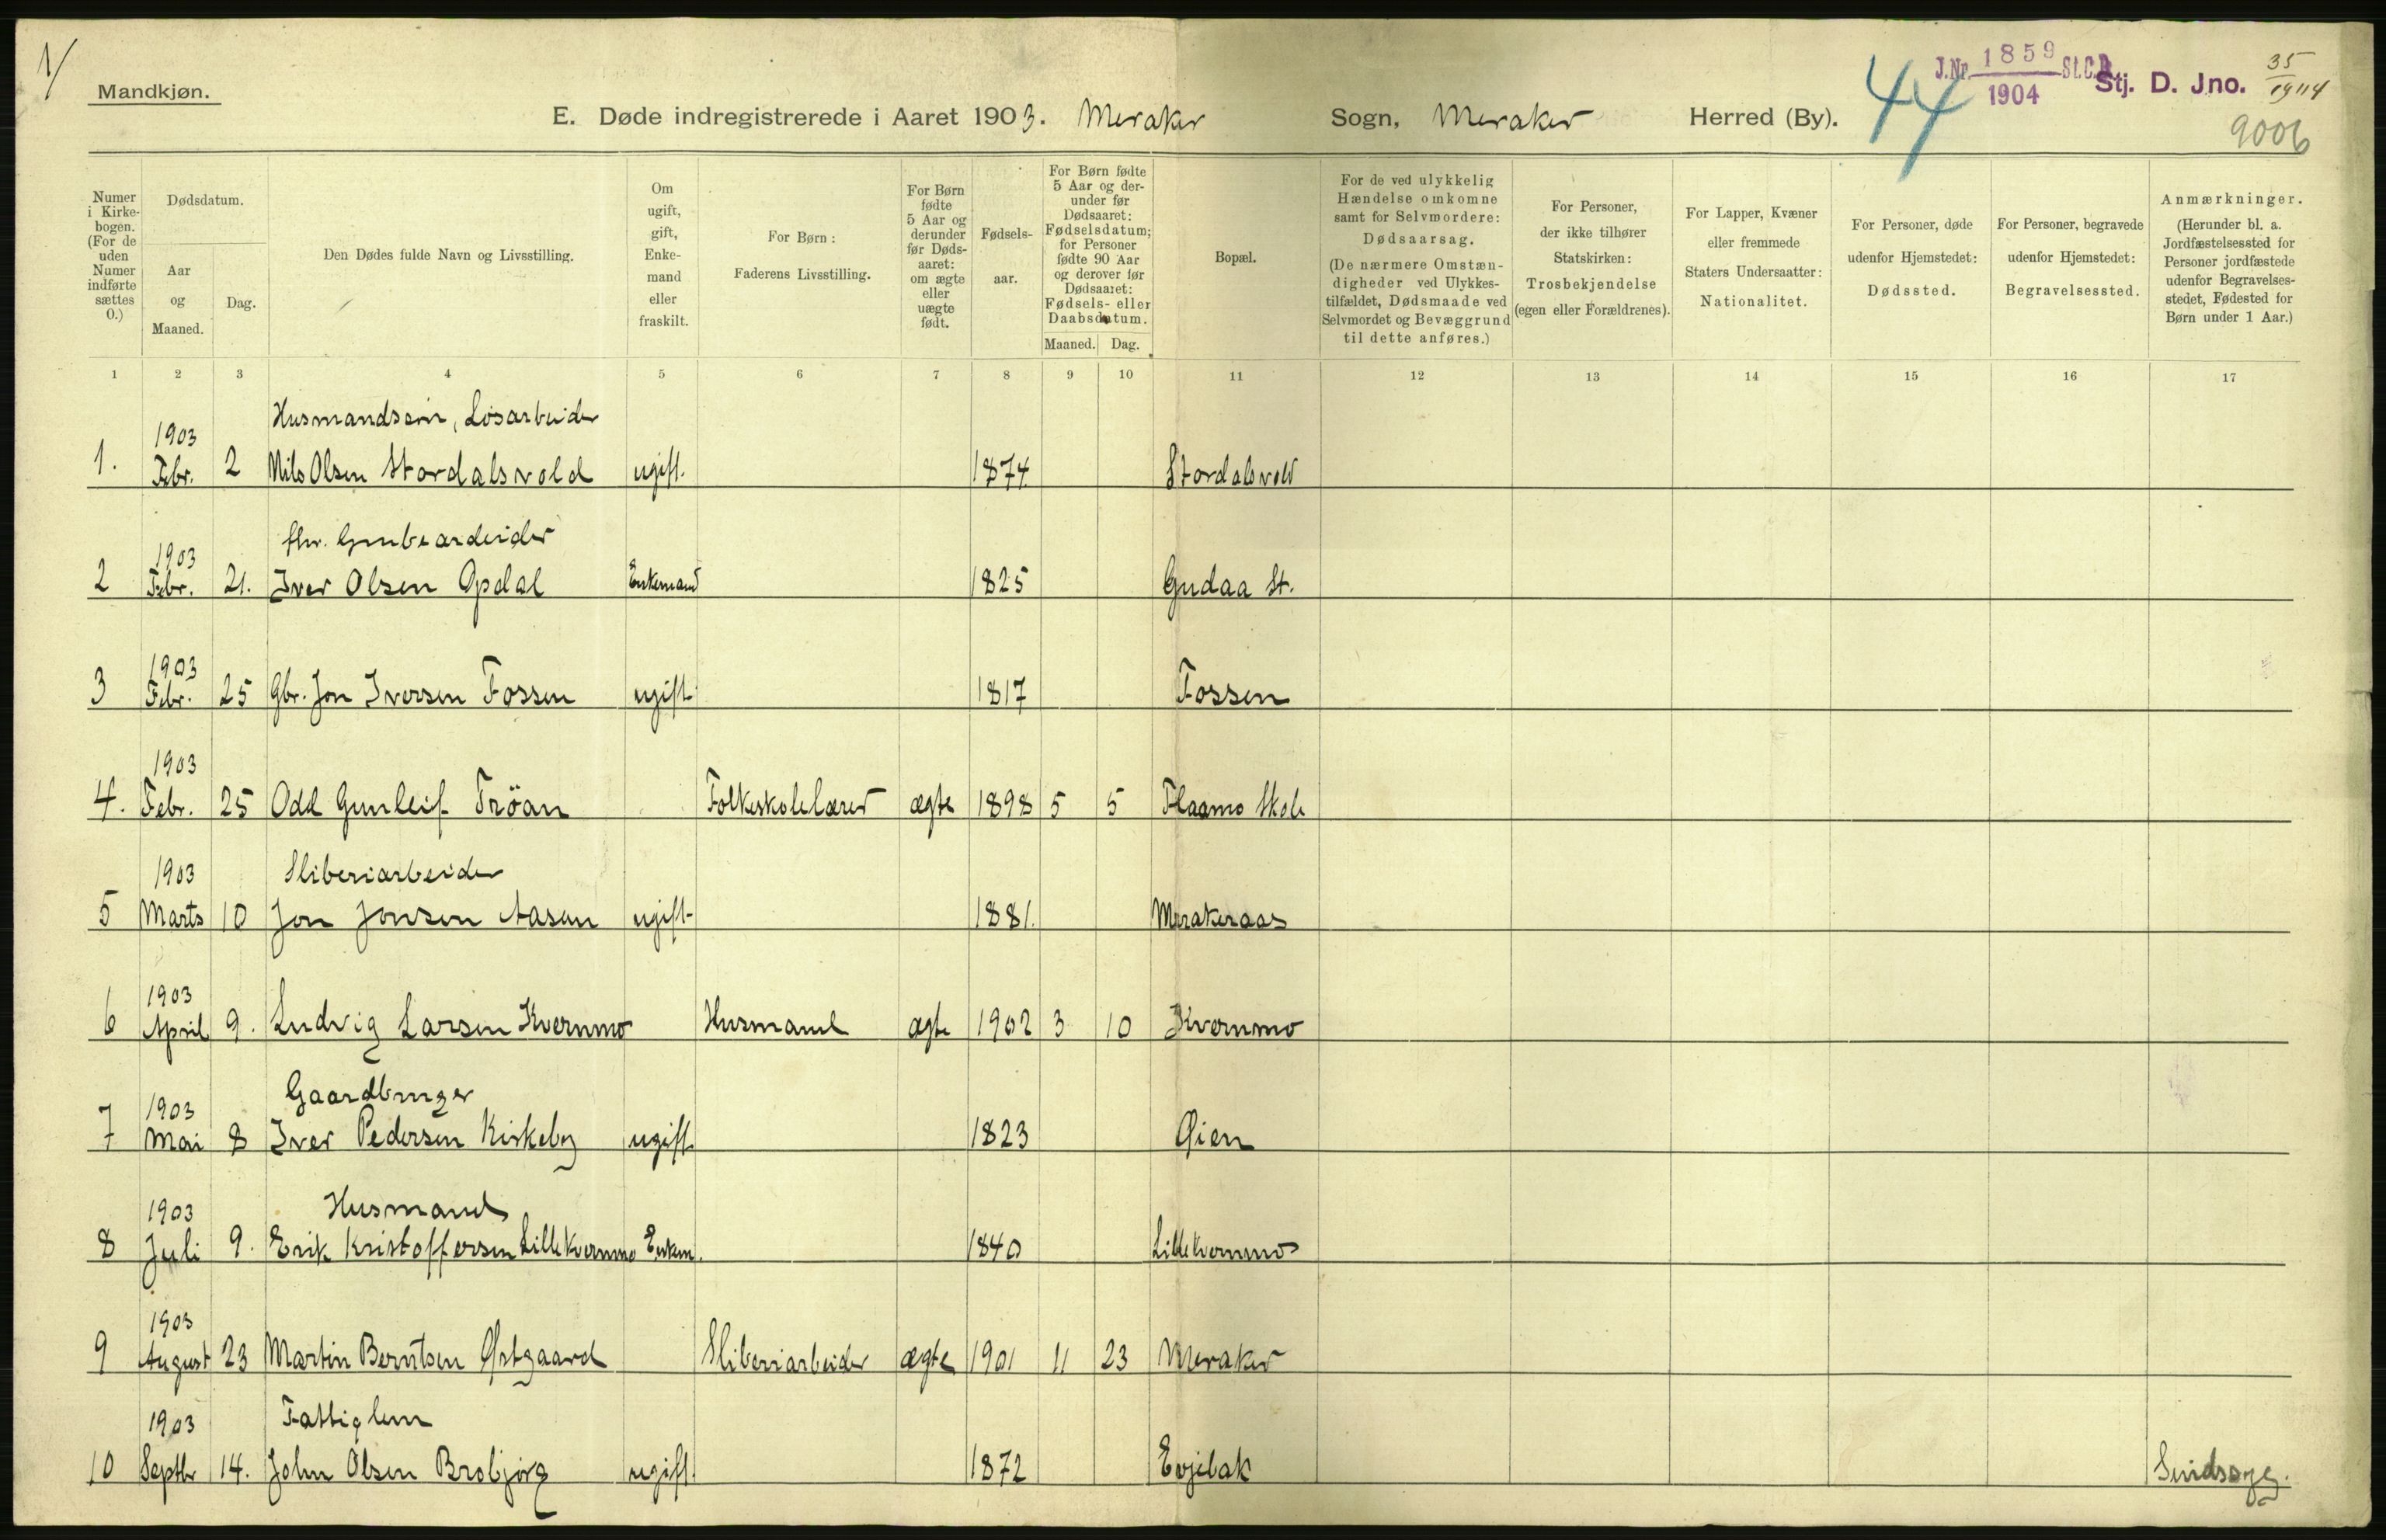 1/
Mandkjøn.
E. Døde indregistrerede i Aaret 1903. Meraker Sogn, Meraker Herred (By).
44
J.Nr. 1859 St.C.B.
1904
Stj. D. Jno. 35
9006
Numer i Kirkebogen. (For de uden Numer indførte sættes 0.)
Dødsdatum.
Aar og Maaned.
Dag.
Den Dødes fulde Navn og Livsstilling.
Om ugift, gift, Enkemand eller fraskilt.
For Børn: Faderens Livsstilling.
For Børn fødte 5 Aar og derunder før Dødsaaret: om ægte eller uægte født.
Fødselsaar.
For Børn fødte 5 Aar og derunder før Dødsaaret: Fødselsdatum; for Personer fødte 90 Aar og derover før Dødsaaret: Fødsels- eller Daabsdatum.
Maaned. Dag.
Bopæl.
For de ved ulykkelig Hændelse omkomne samt for Selvmordere: Dødsaarsag. (De nærmere Omstændigheder ved Ulykkestilfældet, Dødsmaade ved Selvmordet og Bevæggrund til dette anføres.)
For Personer, der ikke tilhører Statskirken: Trosbekjendelse (egen eller Forældrenes).
For Lapper, Kvæner eller fremmede Staters Undersaatter: Nationalitet.
For Personer, døde udenfor Hjemstedet: Dødssted.
For Personer, begravede udenfor Hjemstedet: Begravelsessted.
Anmærkninger. (Herunder bl. a. Jordfæstelsessted for Personer jordfæstede udenfor Begravelsesstedet, Fødested for Børn under 1 Aar.)
1 2 3 4 5 6 7 8 9 10 11 12 13 14 15 16 17
1903 Husmandssøn, Løsarbeider
1. Febr. 2 Nils Olsen Stordalsvold ugift. 1874 Stordalsvold
1903 fhv. Grubearbeider
2 Febr. 21. Iver Olsen Opdal Enkemand 1825 Gudaa St.
1903
3 Febr. 25 Gbr. Jon Iversen Fossen ugift 1817 Fossen
1903
4. Febr. 25 Odd Gunleif Trøan Folkeskolelærer ægte 1898 5 5 Flaamo Skole
1903 Sliberiarbeider
5 Marts 10 Jon Jonsen Aasen ugift 1881. Merakeraas
1903
6 April 9. Ludvig Larsen Kvernmo Husmand ægte 1902 3 10 Kvernmo
1903 Gaardbruger
7 Mai 8 Iver Pedersen Kirkeby ugift 1823 Øien
1903 Husmand
8 Juli 9. Erik Kristoffersen Lillekvernmo Enkem. 1840 Lillekvernmo
1903
9 August 23 Martin Berntsen Østgaard Sliberiarbeider ægte 1901 11 23 Meraker
1903 Fattiglem
10 Septbr 14. John Olsen Brobjørg ugift. 1872 Evjebak Sindssyg.